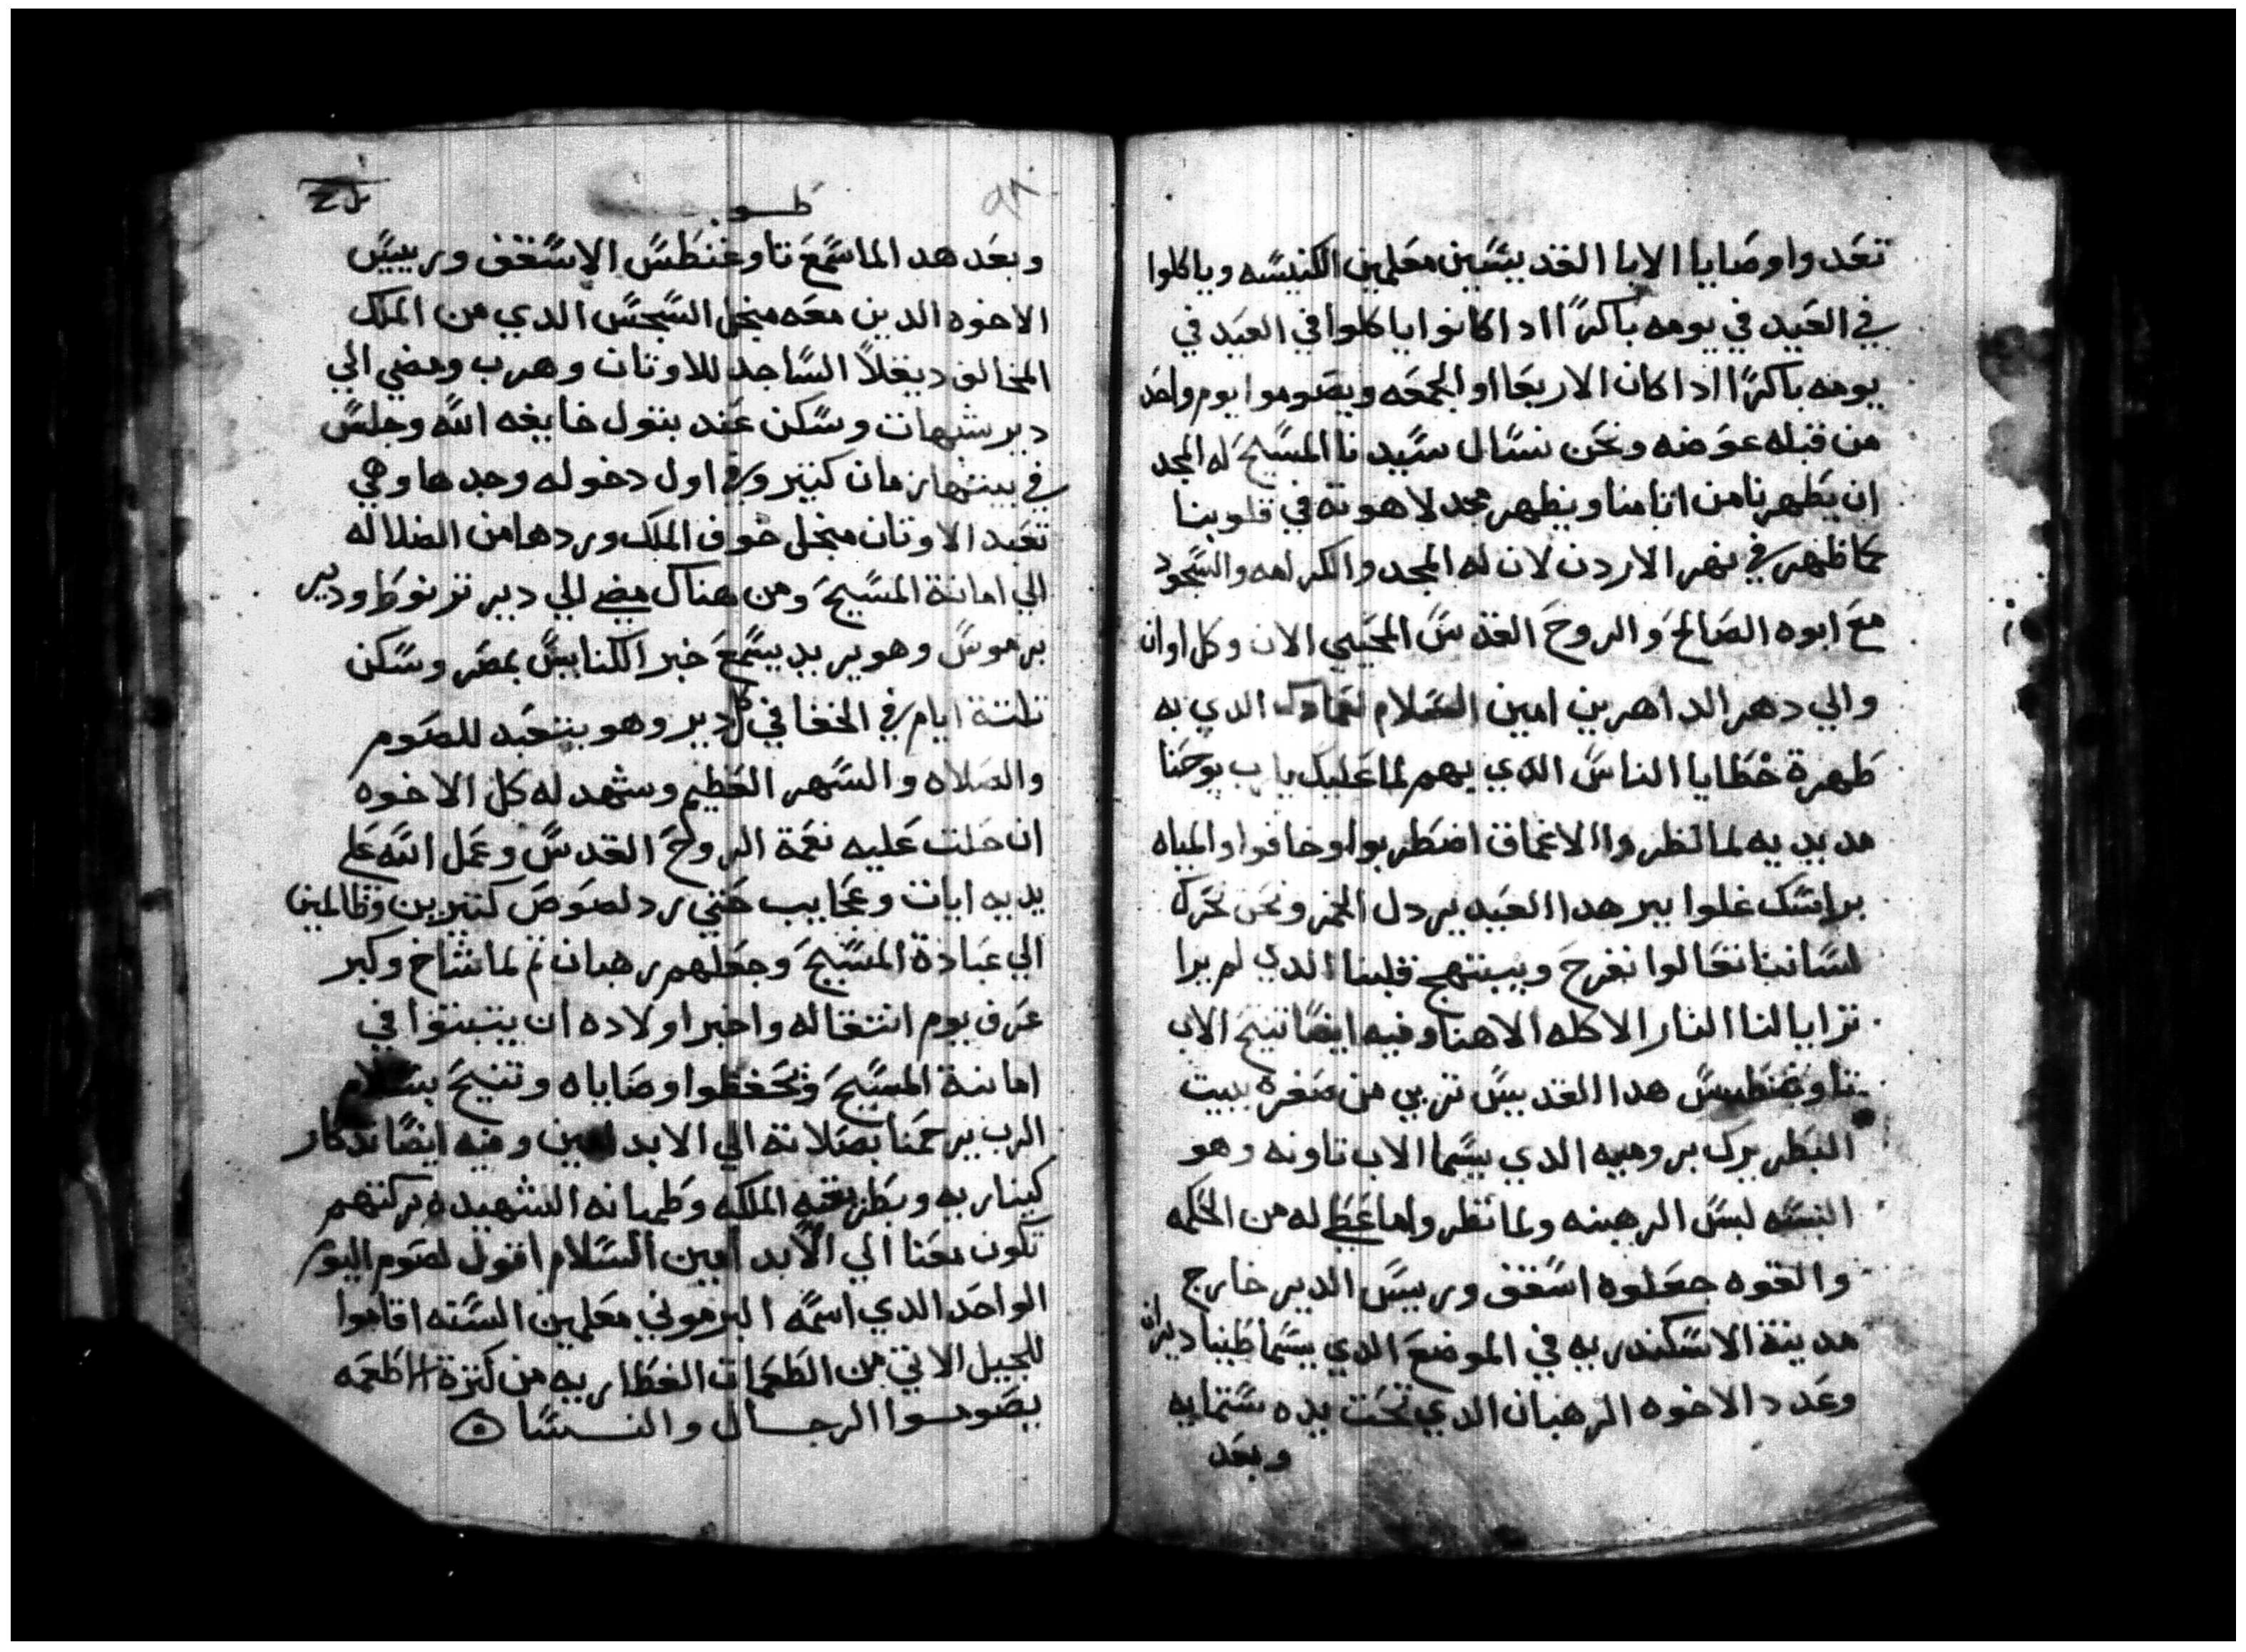 تعدوا وصايا الابا القديسين معلمين الكنيسه وياكلوا
في العيد في يومه باكرًا ادا كانوا ياكلوا في العيد في
يومه باكرًا ادا كان الاربعا او الجمعه ويصوموا يوم واحد
من قبله عوضه ونحن نسال سيدنا المسيح له المجد
ان يطهرنا من اتامنا ويظهر مجد لاهوته في قلوبنا
كما ظهر في نهر الاردن لان له المجد والكرامه والسجود
مع ابوه الصالح والروح القدس المحيي الان وكل اوان
والي دهر الداهرين امين السلام لعمادك الدي به
طهرة خطايا الناس الدي بهم لما عليك ياب يوحنا
مد يديه لما نظروا الاعماق اضطربوا وخافوا والمياه
براسك غلوا بير هدا العيد بيردل الخمر ونحن نحرك
لساننا تعالوا نفرح ويبتهج قلبنا الدي لم يرا
ترايا لنا النار الاكله الاهنا وفيه ايضًا تنيح الاب
تاوغنطس هدا القديس تربي من صغره ببيت
البطريرك بروميه الدي يسما الاب تاونه وهو
البسه لبس الرهبنه ولما نظر واما عطي له من الحكمه
والقوه جعلوه اسقف وربيس الدير خارج
مدينة الاسكندريه في الموضع الدي يسما طبنا ديران
وعدد الاخوه الرهبان الدي تحت يده ستمايه
وبعد
طوبه
٩٨
وبعد هدا لما سمع تاوغنطس الاسقف وربييس
الاخوه الدين معه منجل السجس الدي من الملك
المخالف ديقلاً الساجد للاوتان وهرب ومضي الي
دير شيهات وسكن عند بتول خايفه الله وجلس
في بيتها زمان كبير وفي اول دخوله وجدها وهي
تعبد الاوتان منجل خوف الملك وردها من الضلاله
الي امانة المسيح ومن هناك مضي الي دير ترنوط ودير
برموس وهو يريد يسمع خبر الكنايس بمصر وسكن
تلتة ايام في الخفا في كل دير وهو يتعبد للصوم
والصلاه والسهر العظيم وشهد له كل الاخوه
ان حلت عليه نعمة الروح القدس وعمل الله علي
يديه ايات وعجايب حتي رد لصوص كتيرين وظالمين
الي عبادة المسيح وجعلهم رهبان تم لما شاخ وكبر
عرف يوم انتقاله واخبر اولاده ان يتبتوا في
امانة المسيح وتحفظوا وصاياه وتنيح بسلام
الرب يرحمنا بصلاته الي الابد امين وفيه ايضًا تدكار
كيناريه وبطريقيه الملكه وطميانه الشهيده بركتهم
تكون معنا الي الابد امين السلام اقول لصوم اليوم
الواحد الدي اسمه البرموني معلمين السته اقاموا
للجيل الاتي من الطغمات الفطاريه من كترة اطعمه
يصوموا الرجال والنسا